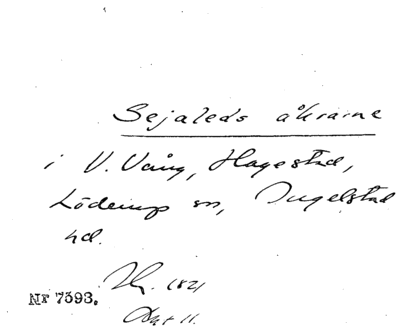 Sejaleds åkrarne
i V. Vång, Hagestad,
Löderup sn, Ingelstad
hd.
1821
Nr 7393. Akt 11.